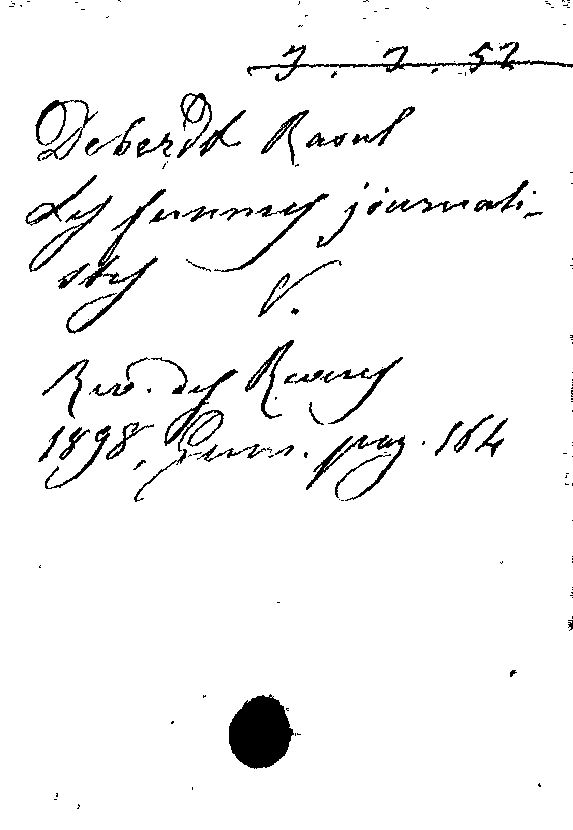 7. 7. 52
Deberdt Raoul
Les femmes journali-
stes V.
Rev. des Revues
1898, pag. 164